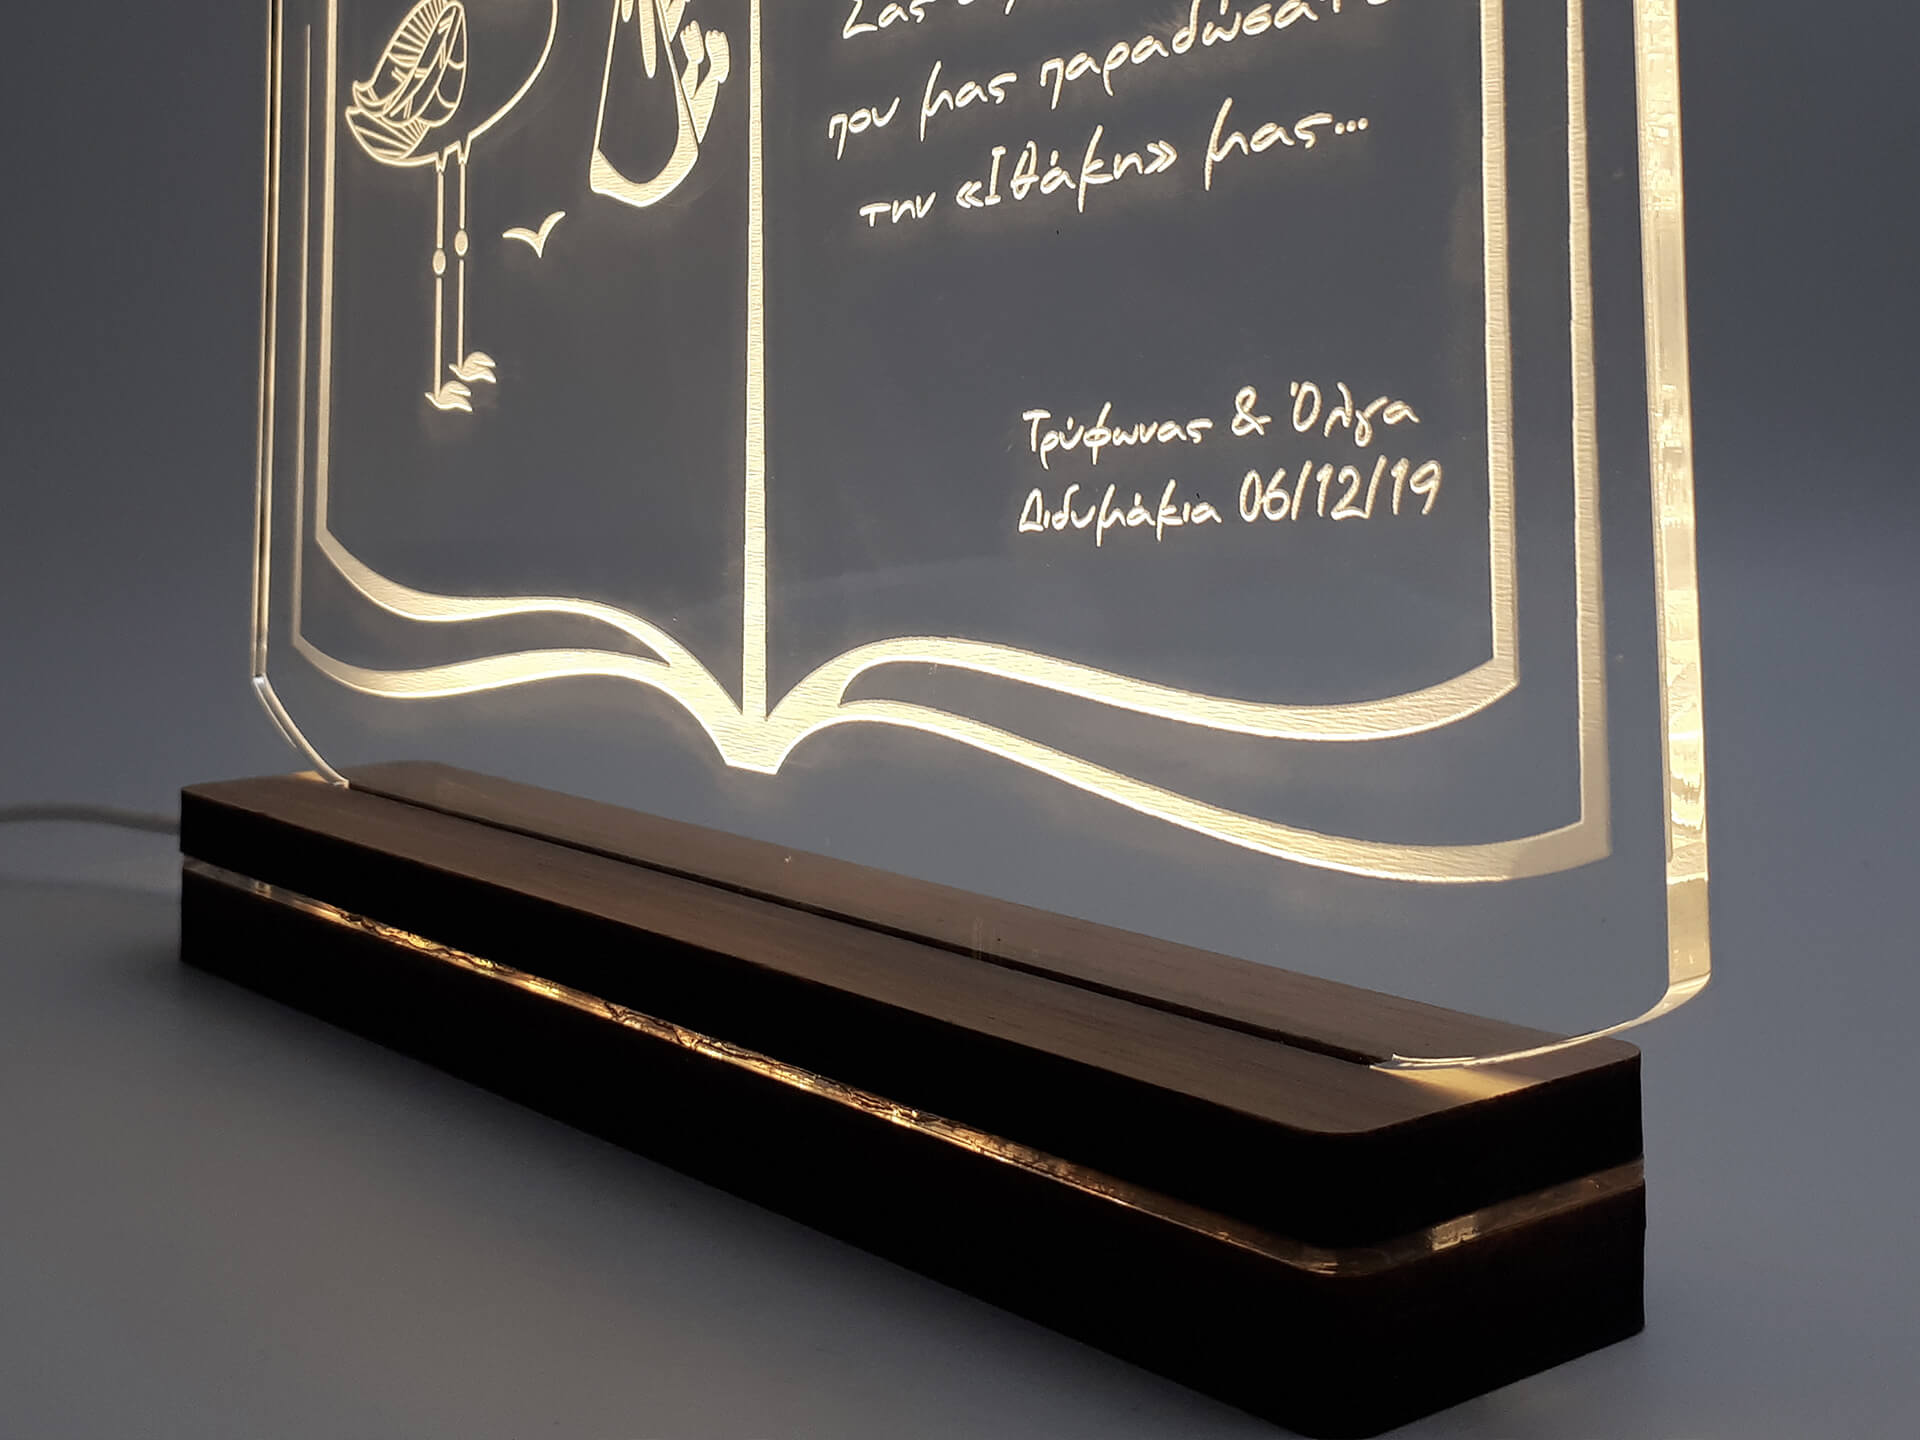 Σας
που μας παραδώσατε
την «Ιθάκη» μας...
Τρύφωνας & Όλγα
Διδυμάκια 06/12/19